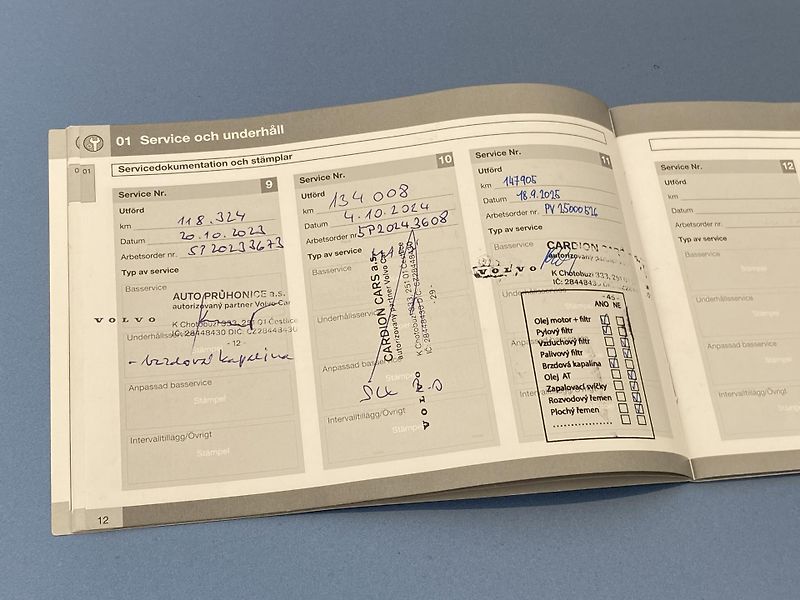 01 Service och underhåll
01
Servicedokumentation och stämplar
Service Nr. 9
Utförd
km 118.324
Datum 20.10.2023
Arbetsorder nr. SP20233673
Typ av service
Basservice
AUTO PRŮHONICE a.s.
autorizovaný partner Volvo Car
VOLVO
K Chotobuzi 333, 251 01 Čestlice
Underhållsservice
IČ: 28448430 DIČ: CZ28448430
- 12 -
- brzdová kapalina
Anpassad basservice
Stämpel
Intervalltillägg/Övrigt
Stämpel
12
Service Nr. 10
Utförd
km 134 008
Datum 4.10.2024
Arbetsorder nr. SP20243608
Typ av service
Basservice
CARDION CARS a.s.
autorizovaný partner Volvo
K Chotobuzi 333, 251 01 Čestlice
-29-
VOLVO
Underhållsservice
Anpassad basservice
Intervalltillägg/Övrigt
Stämpel
Service Nr. 11
Utförd
km 147905
Datum 18.9.2025
Arbetsorder nr. PV25000526
Typ av service
Basservice
CARDION
autorizovaný partner
VOLVO
K Chotobuzi 333, 251
IČ: 28448430
-45-
ANO NE
Olej motor + filtr
Pylový filtr
Vzduchový filtr
Palivový filtr
Brzdová kapalina
Olej AT
Zapalovací svíčky
Rozvodový řemen
Plochý řemen
Service Nr. 12
Utförd
km
Datum
Arbetsorder nr.
Typ av service
Basservice
Stämpel
Underhållsservice
Stämpel
Anpassad basservice
Stämpel
Intervalltillägg/Övrigt